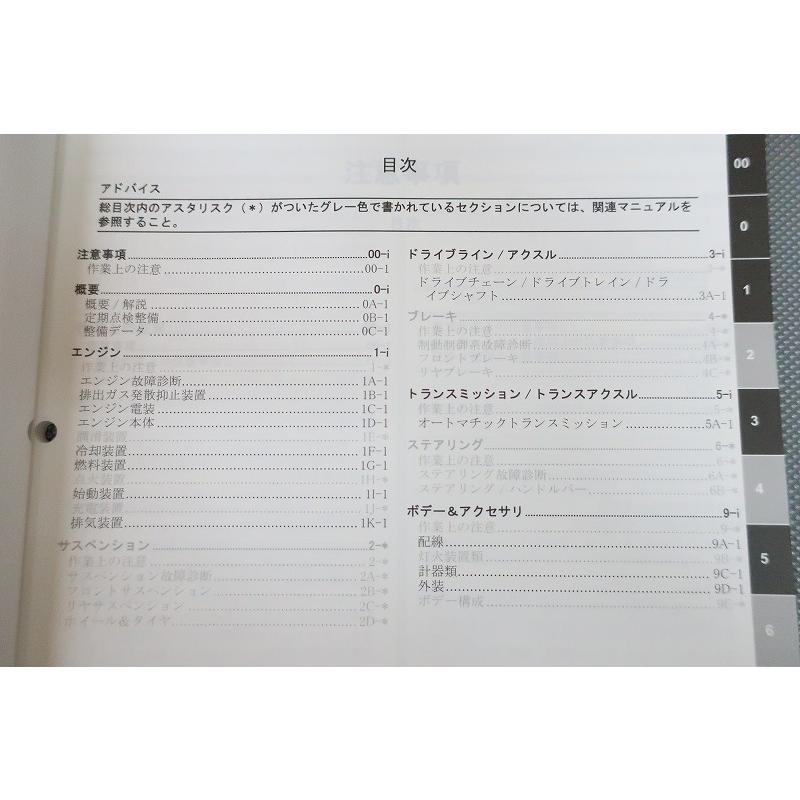 目次
アドバイス
総目次内のアスタリスク（＊）がついたグレー色で書かれているセクションについては、関連マニュアルを
参照すること。
注意事項 00-i
作業上の注意 00-1
概要 0-i
概要 / 解説 0A-1
定期点検整備 0B-1
整備データ 0C-1
エンジン 1-i
作業上の注意 1-*
エンジン故障診断 1A-1
排出ガス発散抑止装置 1B-1
エンジン電装 1C-1
エンジン本体 1D-1
潤滑装置 1E-*
冷却装置 1F-1
燃料装置 1G-1
点火装置 1H-*
始動装置 1I-1
充電装置 1J-*
排気装置 1K-1
サスペンション 2-*
作業上の注意 2-*
サスペンション故障診断 2A-*
フロントサスペンション 2B-*
リヤサスペンション 2C-*
ホイール＆タイヤ 2D-*
ドライブライン / アクスル 3-i
作業上の注意 3-*
ドライブチェーン / ドライブトレイン / ドラ
イブシャフト 3A-1
ブレーキ 4-*
作業上の注意 4-*
制動制御系故障診断 4A-*
フロントブレーキ 4B-*
リヤブレーキ 4C-*
トランスミッション / トランスアクスル 5-i
作業上の注意 5-*
オートマチックトランスミッション 5A-1
ステアリング 6-*
作業上の注意 6-*
ステアリング故障診断 6A-*
ステアリング / ハンドルバー 6B-*
ボデー＆アクセサリ 9-i
作業上の注意 9-*
配線 9A-1
灯火装置類 9B-*
計器類 9C-1
外装 9D-1
ボデー構成 9E-*
00
0
1
2
3
4
5
6